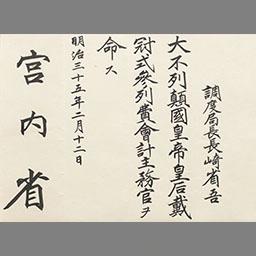 調度局長長崎省吾
大不列顛國皇帝皇后戴
冠式參列費會計主務官ヲ
命ス
明治三十五年二月十二日
宮內省